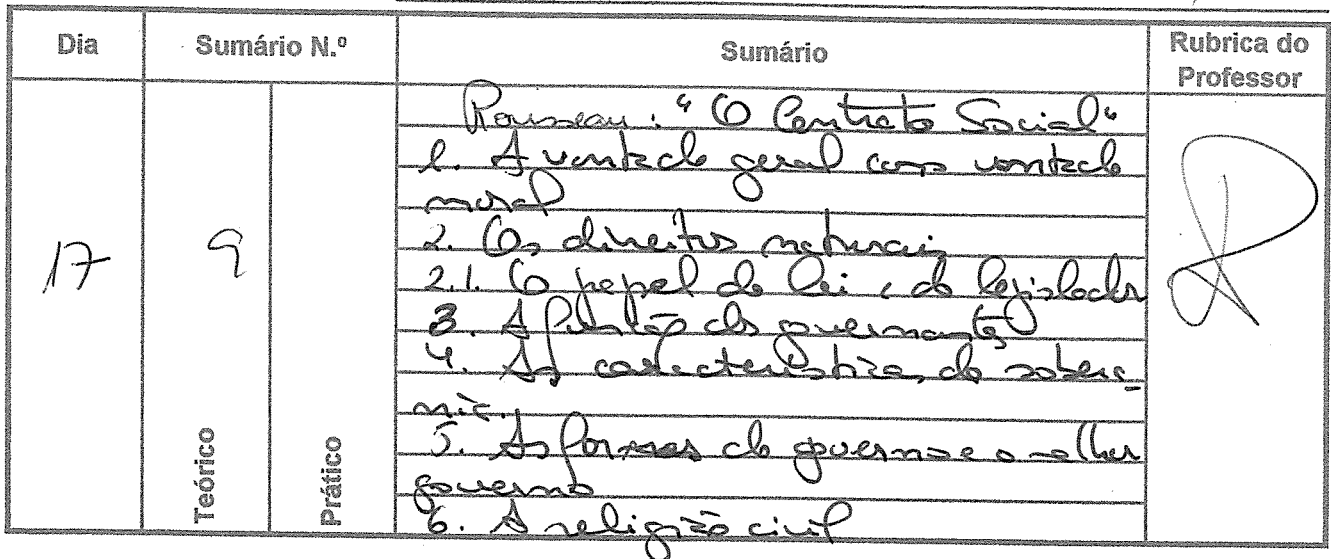 Dia
Sumário N.º
Sumário
Rubrica do
Professor
17
9
Teórico
Prático
Rousseau: "O Contrato Social"
1. A vontade geral como vontade
moral
2. Os direitos naturais
2.1. O papel da lei e do legislador
3. A função dos governantes
4. As características da sobera-
nia.
5. As formas de governo e o melhor
governo
6. A religião civil